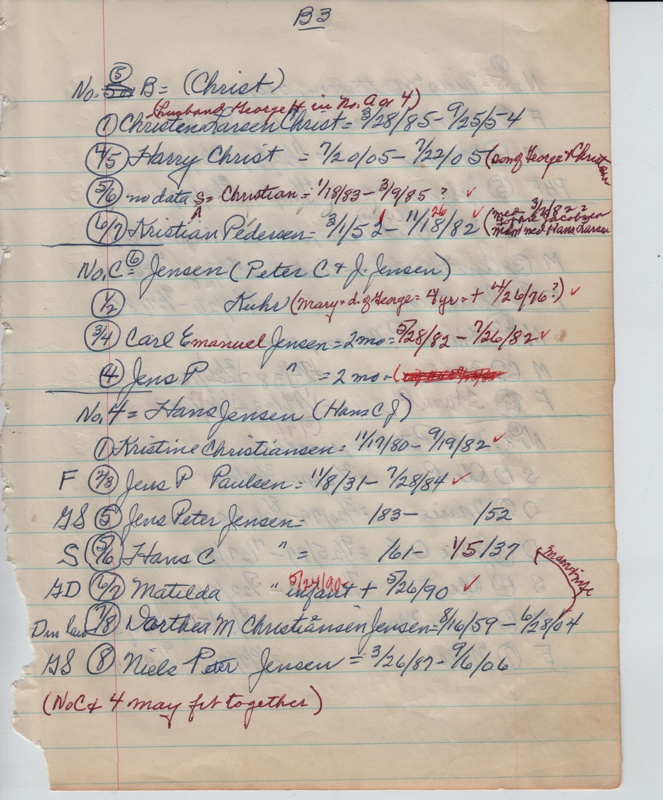 B3
No. 5 B = (Christ)
(husband George H in No. A or 4)
① Christen Larsen Christ = 3/28/85 - 9/25/54
4/5 Harry Christ = 7/20/05 - 7/22/05 (son of George + Christen
5/6 no data S = Christian = 1/18/83 - 3/9/85 ? ✓
6/7 Kristian Pedersen = 3/1/52 - 11/18/82 26 ✓ (med 3/2/82 ?
Jacobsen
med Hans Larsen
No. C = 6 Jensen (Peter C + J. Jensen)
1/2 Kuhr (Mary = d. of George = 4 yr = + 4/26/76?) ✓
3/4 Carl Emanuel Jensen = 2 mo = 5/28/82 - 7/26/82 ✓
④ Jens P " = 2 mo - (
No. 4 = Hans Jensen (Hans C J)
① Kristine Christiansen = 11/17/80 - 9/19/82 ✓
F 2/3 Jens P Paulsen = 11/8/31 - 7/28/84 ✓
GS ⑤ Jens Peter Jensen = /83 - /52
S 5/6 Hans C " = /61 - 1/5/37
GD 6/7 Matilda " infant + 5/26/90 ✓
5/24/90 -
man + wife
Dau law 7/8 Dorthea M Christiansen Jensen = 8/16/59 - 6/28/04
GS ⑧ Niels Peter Jensen = 3/26/87 - 9/6/06
(No C + 4 may fit together)